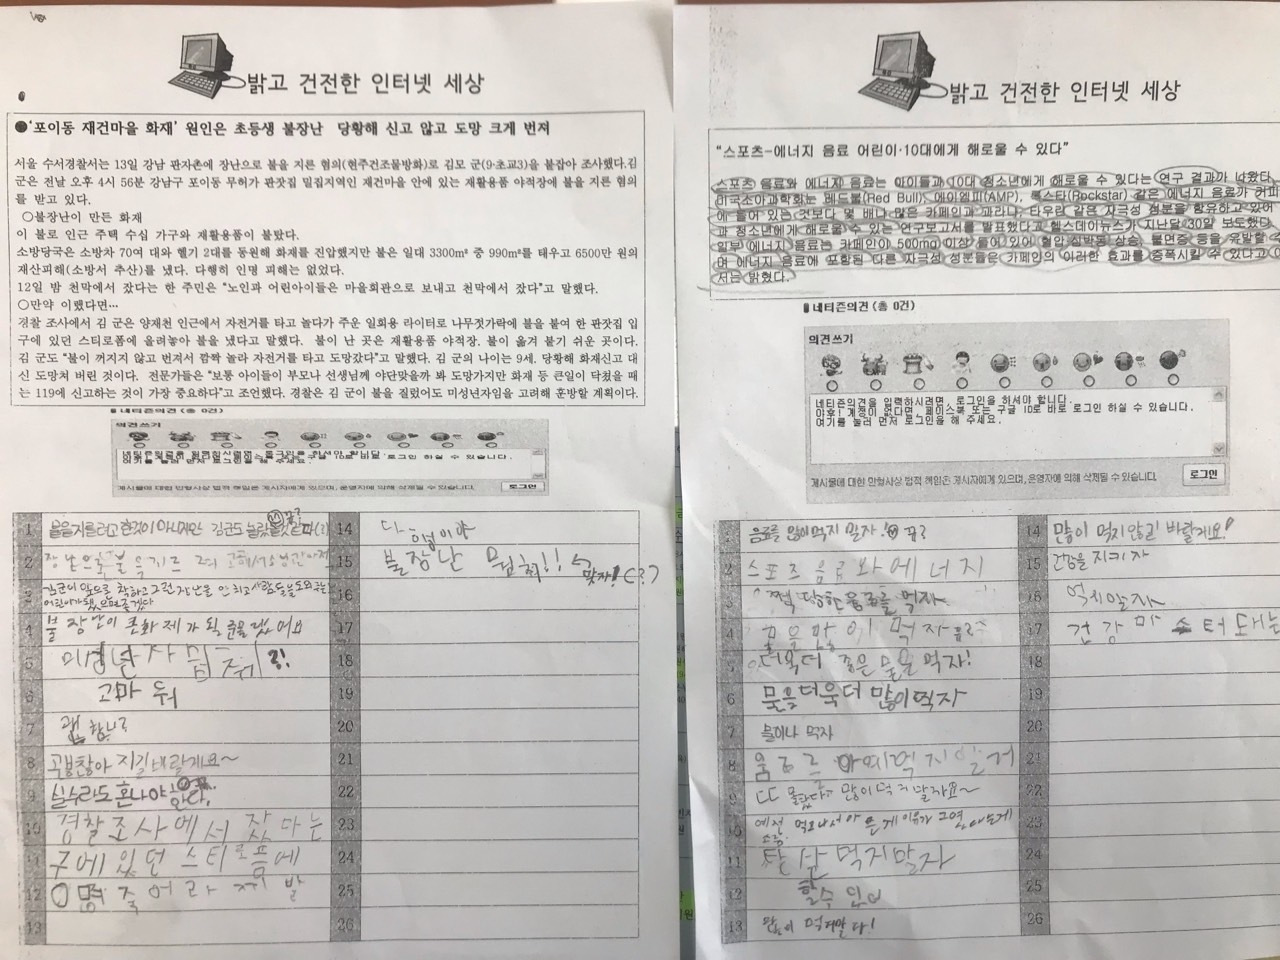 밝고 건전한 인터넷 세상
●'포이동 재건마을 화재' 원인은 초등생 불장난 당황해 신고 않고 도망 크게 번져
서울 수서경찰서는 13일 강남 판자촌에 장난으로 불을 지른 혐의(현주건조물방화)로 김모 군(9·초교3)을 붙잡아 조사했다.김
군은 전날 오후 4시 56분 강남구 포이동 무허가 판잣집 밀집지역인 재건마을 안에 있는 재활용품 야적장에 불을 지른 혐의
를 받고 있다.
○불장난이 만든 화재
이 불로 인근 주택 수십 가구와 재활용품이 불탔다.
소방당국은 소방차 70여 대와 헬기 2대를 동원해 화재를 진압했지만 불은 일대 3300m² 중 990m²를 태우고 6500만 원의
재산피해(소방서 추산)를 냈다. 다행히 인명 피해는 없었다.
12일 밤 천막에서 잤다는 한 주민은 "노인과 어린아이들은 마을회관으로 보내고 천막에서 잤다"고 말했다.
○만약 이랬다면…
경찰 조사에서 김 군은 양재천 인근에서 자전거를 타고 놀다가 주운 일회용 라이터로 나무젓가락에 불을 붙여 한 판잣집 입
구에 있던 스티로폼에 올려놓아 불을 냈다고 말했다. 불이 난 곳은 재활용품 야적장. 불이 옮겨 붙기 쉬운 곳이다.
김 군도 "불이 꺼지지 않고 번져서 깜짝 놀라 자전거를 타고 도망갔다"고 말했다. 김 군의 나이는 9세. 당황해 화재신고 대
신 도망쳐 버린 것이다. 전문가들은 "보통 아이들이 부모나 선생님께 야단맞을까 봐 도망가지만 화재 등 큰일이 닥쳤을 때
는 119에 신고하는 것이 가장 중요하다"고 조언했다. 경찰은 김 군이 불을 질렀어도 미성년자임을 고려해 훈방할 계획이다.
네티즌의견 (총 0건)
의견쓰기
게시물에 대한 민형사상 법적 책임은 게시자에게 있으며, 운영자에 의해 삭제될 수 있습니다.
로그인
1 불을지를려고 한것이 아니지만 김군도
2
3 김군이 앞으로 착하고 그런 장난을 안 치고 사람들을 도와주는
어린이가 됐으면 좋겠다
4 불 장난이 큰화제가 될 줄을 몰랐어요
5 미성년자
6 고마 둬
7
8 괜찮아 지길바랄게요~
9 실수라도 혼나야
10 경찰조사에서 잤다는
11 구에있던 스티로폼에
12
13
14 다행이야
15 불장난 멈춰!! 맞자!
16
17
18
19
20
21
22
23
24
25
26
밝고 건전한 인터넷 세상
"스포츠-에너지 음료 어린이·10대에게 해로울 수 있다"
스포츠 음료와 에너지 음료는 아이들과 10대 청소년에게 해로울 수 있다는 연구 결과가 나왔다.
미국소아과학회는 레드불(Red Bull), 에이엠피(AMP), 록스타(Rockstar) 같은 에너지 음료가 커피
에 들어 있는 것보다 몇 배나 많은 카페인과 과라나, 타우린 같은 자극성 성분을 함유하고 있어
과 청소년에게 해로울 수 있다는 연구보고서를 발표했다고 헬스데이뉴스가 지난달 30일 보도했다.
일부 에너지 음료는 카페인이 500mg 이상 들어 있어 혈압·심박동 상승, 불면증 등을 유발할 수
며 에너지 음료에 포함된 다른 자극성 성분들은 카페인의 이러한 효과를 증폭시킬 수 있다고
서는 밝혔다.
네티즌의견 (총 0건)
의견쓰기
네티즌의견을 입력하시려면, 로그인을 하셔야 합니다.
야후! 계정이 없다면, 페이스북 또는 구글 ID로 바로 로그인 하실 수 있습니다.
여기를 눌러 먼저 로그인을 해 주세요.
게시물에 대한 민형사상 법적 책임은 게시자에게 있으며, 운영자에 의해 삭제될 수 있습니다.
로그인
1 음료를 많이먹지 말자!
2 스포츠 음료와에너지
3 적당한음료를 먹자
4 물을 많이 먹자
5 더욱더 좋은 물을 먹자!
6 물을더욱더 많이먹자
7 물이나 먹자
8
9 많이 먹지말자요~
10
11 먹지말자
12 할수 있어
13 많이 먹지말자!
14 많이 먹지않길 바랄게요!
15 건강을 지키자
16 먹지말자
17 건강
18
19
20
21
22
23
24
25
26